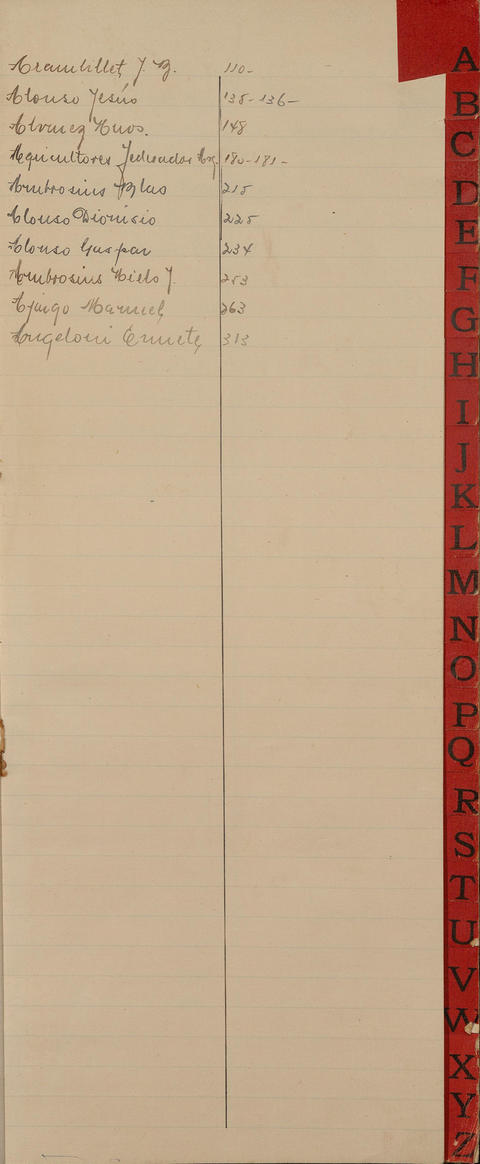 Arambillet, J. B. 110-
Alonso Jesús 135-136-
Alvarez Hnos. 148
Agricultores Federados Arg. 180-181-
Ambrosius Blas 215
Alonso Dionisio 225
Alonso Gaspar 234
Ambrosius Hielo J. 253
Manuel 263
Angeloni Ermete 313
A
B
C
D
E
F
G
H
I
J
K
L
M
N
O
P
Q
R
S
T
U
V
W
X
Y
Z